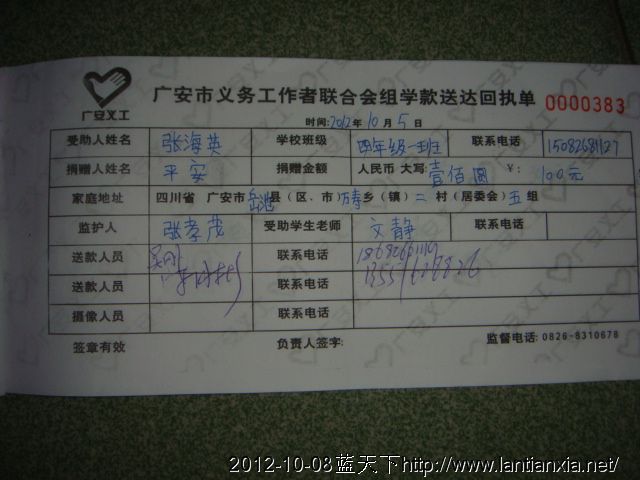 广安义工
广安市义务工作者联合会组学款送达回执单 0000383
时间:2012年10月5日
受助人姓名 张海英 学校班级 四年级一班 联系电话 15082681127
捐赠人姓名 平安 捐赠金额 人民币 大写 壹佰圆 ¥: 100元
家庭地址 四川省 广安市 岳池县(区、市) 乡(镇) 二 村(居委会) 五 组
监护人 张孝茂 受助学生老师 文静 联系电话
送款人员 联系电话
送款人员 联系电话
摄像人员 联系电话
签章有效 负责人签字: 监督电话:0826-8310678
2012-10-08蓝天下http://www.lantianxia.net/